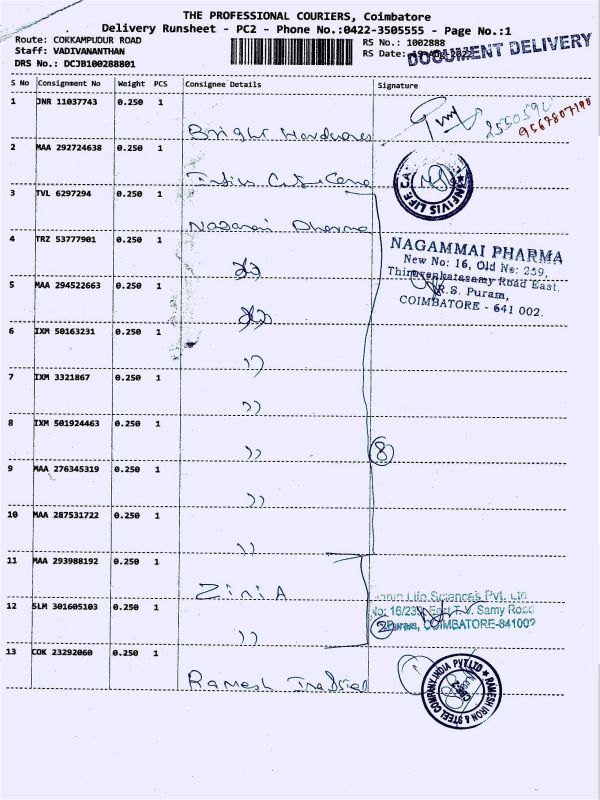 THE PROFESSIONAL COURIERS, Coimbatore
Delivery Runsheet - PC2 - Phone No.:0422-3505555 - Page No.:1
Route: COKKAMPUDUR ROAD
Staff: VADIVANANTHAN
DRS No.: DCJB100288801
RS No.: 1002888
RS Date:
DOCUMENT DELIVERY
S No Consignment No Weight PCS Consignee Details Signature
1 JNR 11037743 0.250 1
Bright Hardwares
2550592
9567807190
2 MAA 292724638 0.250 1
INFIVIS LIFE
3 TVL 6297294 0.250 1
Nagamai Pharma
4 TRZ 53777901 0.250 1
NAGAMMAI PHARMA
New No: 16, Old No: 259,
Thiruvenkatasamy Road East,
R.S. Puram,
COIMBATORE - 641 002.
5 MAA 294522663 0.250 1
6 IXM 50163231 0.250 1
))
7 IXM 3321867 0.250 1
))
8 IXM 501924463 0.250 1
)) 8
9 MAA 276345319 0.250 1
))
10 MAA 287531722 0.250 1
))
11 MAA 293988192 0.250 1
ZiniA
Life Sciences Pvt. Ltd
No: 16/239, East T.V. Samy Road
Puram, COIMBATORE-641002
12 SLM 301605103 0.250 1
)) 2
13 COK 23292060 0.250 1
Ramesh
1
RAMESH IRON & STEEL COMPANY INDIA PVT LTD
CBE-2